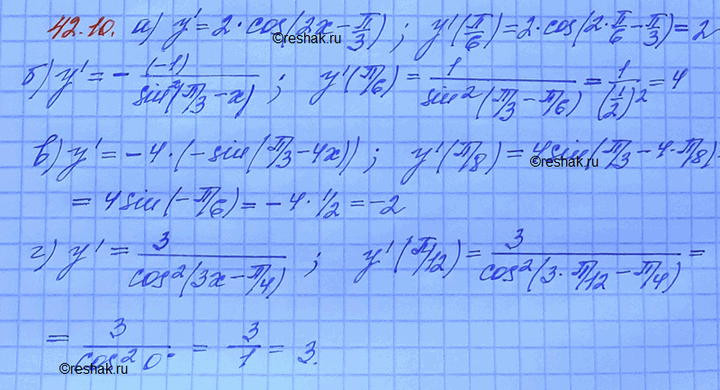 42.10. а) y' = 2·cos(2x - π/3) ; y'(π/6) = 2·cos(2·π/6 - π/3) = 2
©reshak.ru
б) y' = - (-1)/sin²(π/3 - x) ; y'(π/6) = 1/sin²(π/3 - π/6) = 1/(1/2)² = 4
©reshak.ru
в) y' = -4·(-sin(π/3 - 4x)) ; y'(π/8) = 4sin(π/3 - 4·π/8) =
©reshak.ru
= 4sin(-π/6) = -4·1/2 = -2
г) y' = 3/cos²(3x - π/4) ; y'(π/12) = 3/cos²(3·π/12 - π/4) =
©reshak.ru
= 3/cos²0° = 3/1 = 3.
©reshak.ru